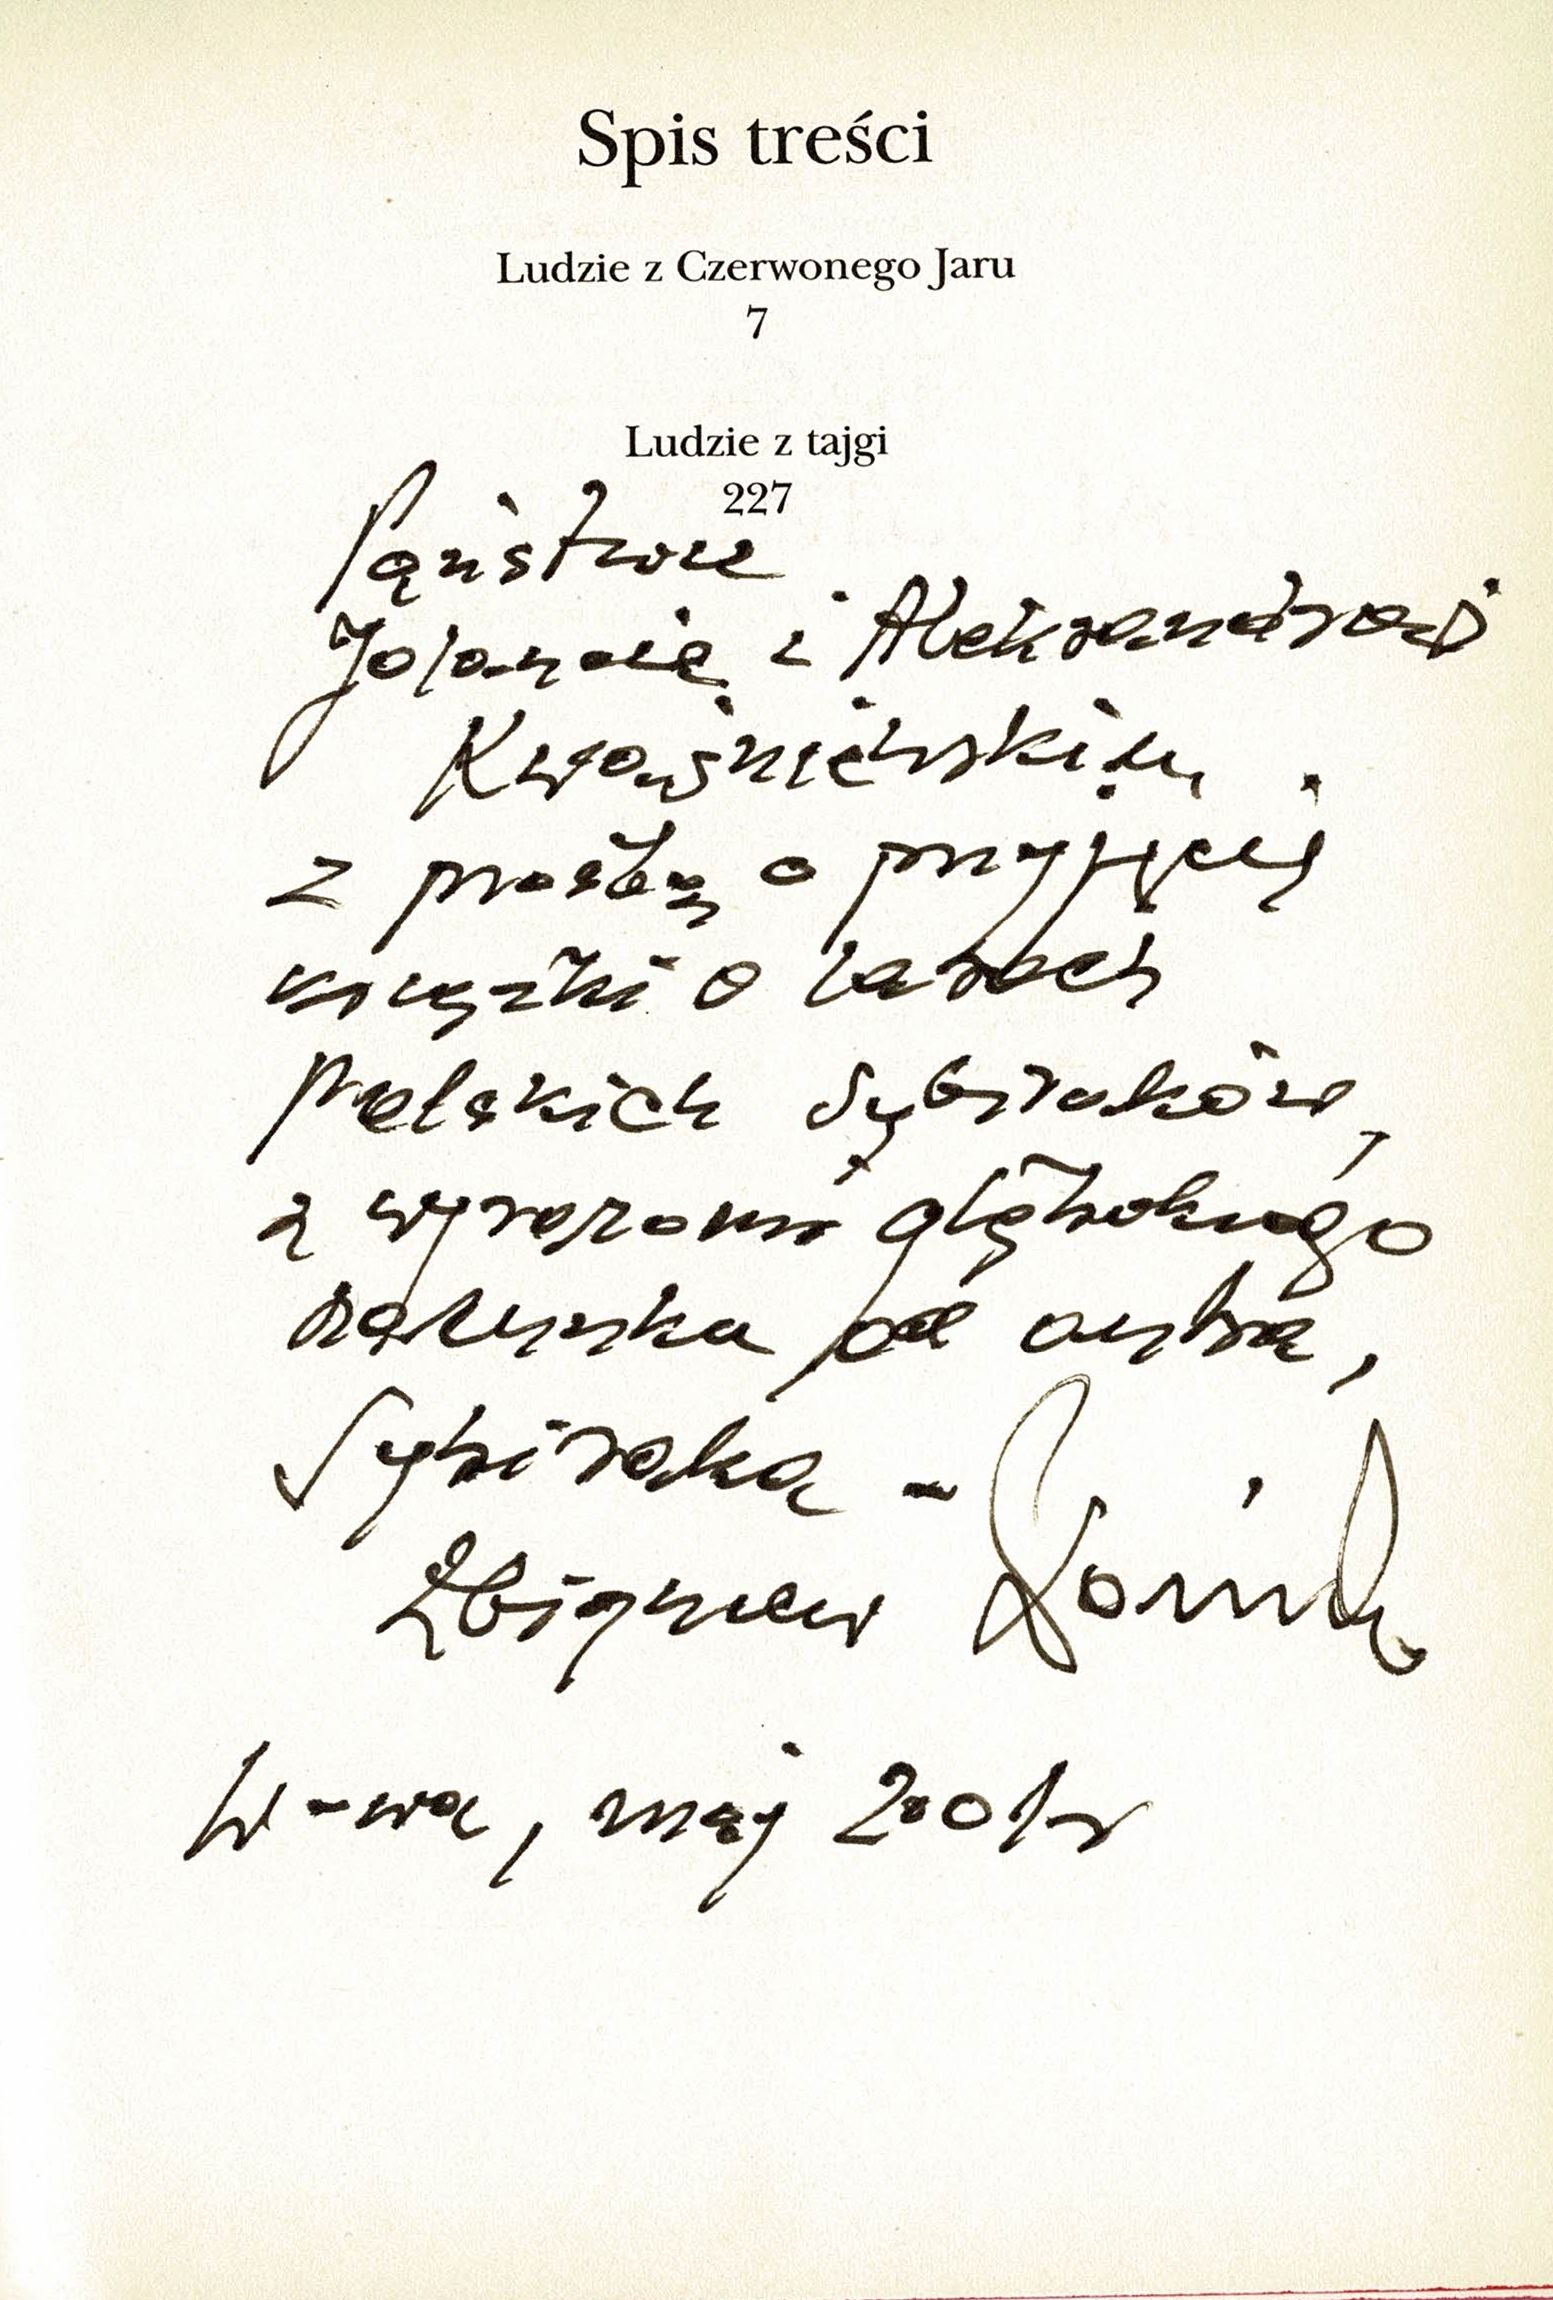 Spis treści
Ludzie z Czerwonego Jaru
7
Ludzie z tajgi
227
Państwu
Jolancie i Aleksandrowi
Kwaśniewskim,
z prośbą o przyjęcie
książki o losach
polskich Sybiraków,
z wyrazami głębokiego
szacunku od autora,
Sybiraka –
Zbigniew Domino
W-wa, maj 2001 r